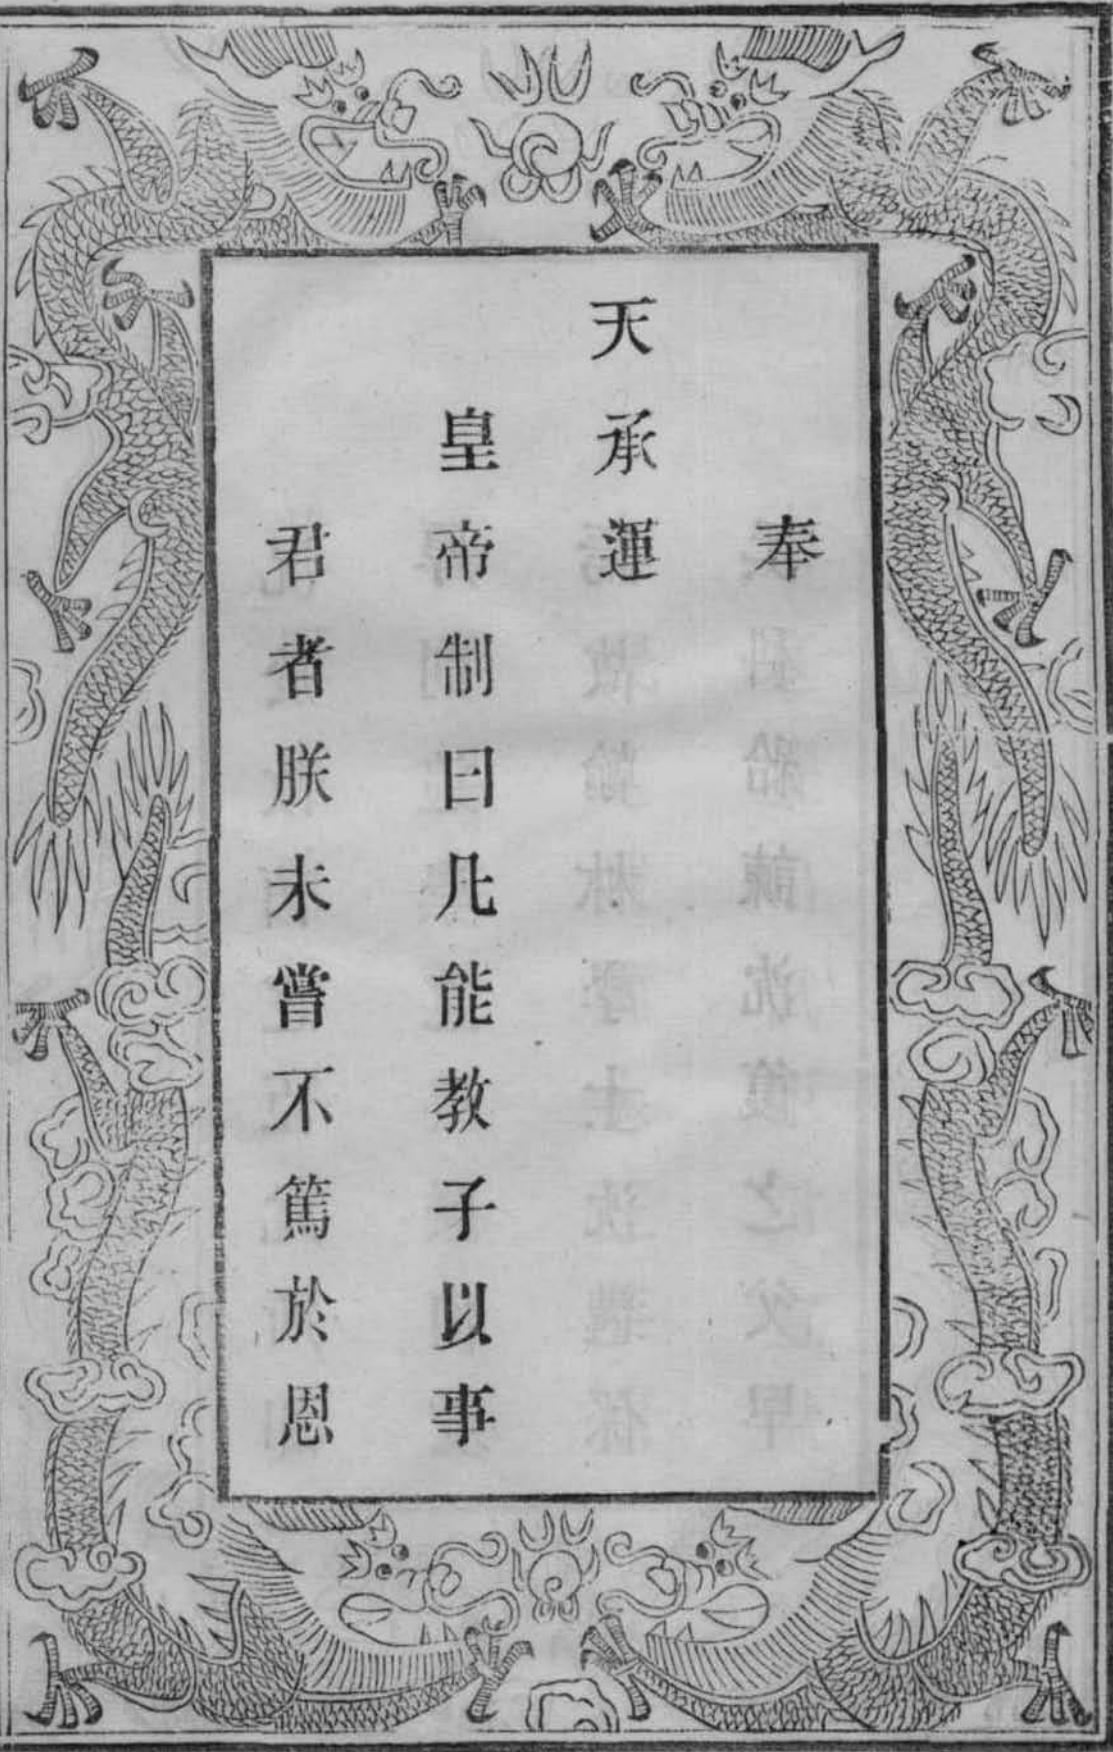 奉
天承運
皇帝制曰凡能教子以事
君者朕未嘗不篤於恩